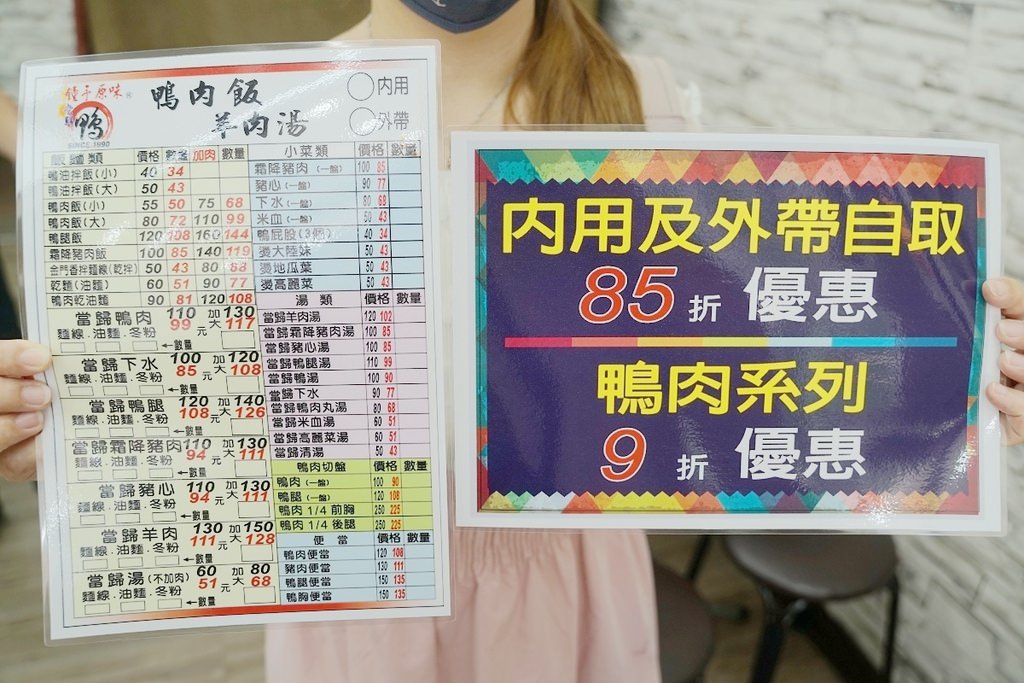 鍾予原味®
鴨
SINCE.1990
鴨肉飯
羊肉湯
內用
外帶
飯麵類 價格 數量 加肉 數量
鴨油拌飯(小) 40 34
鴨油拌飯(大) 50 43
鴨肉飯(小) 55 50 75 68
鴨肉飯(大) 80 72 110 99
鴨腿飯 120 108 160 144
霜降豬肉飯 100 85 140 119
金門香拌麵線(乾拌) 50 43 80 68
乾麵(油麵) 60 51 90 77
鴨肉乾油麵 90 81 120 108
當歸鴨肉 110 99 元 加大 130 117
麵線.油麵.冬粉
←數量
當歸下水 100 85 元 加大 120 108
麵線.油麵.冬粉
←數量
當歸鴨腿 120 108 元 加大 140 126
麵線.油麵.冬粉
←數量
當歸霜降豬肉 110 94 元 加大 130 111
麵線.油麵.冬粉
←數量
當歸豬心 110 94 元 加大 130 111
麵線.油麵.冬粉
←數量
當歸羊肉 130 111 元 加大 150 128
麵線.油麵.冬粉
←數量
當歸湯(不加肉) 60 51 元 加大 80 68
麵線.油麵.冬粉
←數量
小菜類 價格 數量
霜降豬肉(一盤) 100 85
豬心(一盤) 90 77
下水(一盤) 80 68
米血(一盤) 50 43
鴨屁股(3個) 40 34
燙大陸妹 50 43
燙地瓜葉 50 43
燙高麗菜 50 43
湯類 價格 數量
當歸羊肉湯 120 102
當歸霜降豬肉湯 100 85
當歸豬心湯 100 85
當歸鴨腿湯 110 99
當歸鴨湯 100 90
當歸下水 90 77
當歸鴨肉丸湯 80 68
當歸米血湯 60 51
當歸高麗菜湯 60 51
當歸清湯 50 43
鴨肉切盤 價格 數量
鴨肉(一盤) 100 90
鴨腿(一盤) 120 108
鴨肉 1/4 前胸 250 225
鴨肉 1/4 後腿 250 225
便當 價格 數量
鴨肉便當 120 108
豬肉便當 130 111
鴨腿便當 150 135
鴨胸便當 150 135
內用及外帶自取
85折 優惠
鴨肉系列
9折 優惠